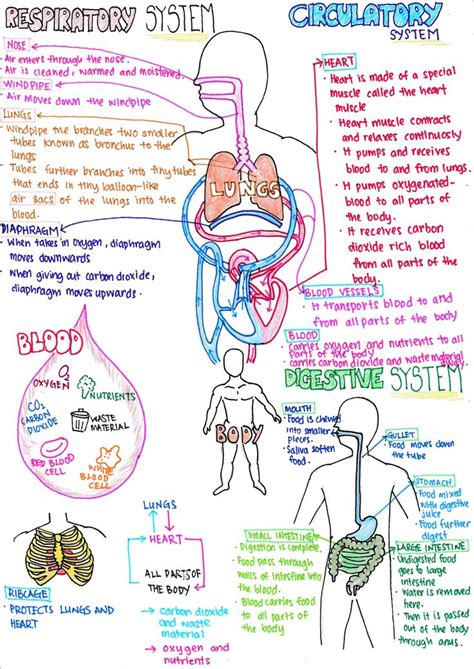 RESPIRATORY SYSTEM
NOSE
Air enters through the nose.
Air is cleaned, warmed and moistened.
WINDPIPE
Air moves down the windpipe
LUNGS
Windpipe the branches two smaller
tubes known as bronchus to the
lungs
Tubes further branches into tiny tubes
that ends in tiny balloon-like
air sacs of the lungs into the
blood.
DIAPHRAGM
When takes in oxygen, diaphragm
moves downwards
When giving out carbon dioxide,
diaphragm moves upwards.
LUNGS
CIRCULATORY
SYSTEM
HEART
Heart is made of a special
muscle called the heart
muscle
Heart muscle contracts
and relaxes continuously
It pumps and receives
blood to and from lungs.
It pumps oxygenated-
blood to all parts of
the body.
It receives carbon
dioxide rich blood
from all parts of
the body.
BLOOD VESSELS
It transports blood to and
from all parts of the body
BLOOD
carries oxygen and nutrients to all
parts of the body
carries carbon dioxide and waste material
away.
BLOOD
OXYGEN
NUTRIENTS
CO2
CARBON
DIOXIDE
WASTE
MATERIAL
RED BLOOD
CELL
WHITE
BLOOD
CELL
BODY
DIGESTIVE SYSTEM
MOUTH
Food is chewed
into smaller
pieces.
Saliva soften
food.
GULLET
Food moves down
the tube
STOMACH
Food mixed
with digestive
juice
Food further
digest
SMALL INTESTINE
Digestion is complete.
Food pass through
walls of intestine into
the blood.
Blood carries food
to all parts of the
body.
LARGE INTESTINE
Undigested food
goes to large
intestine
Water is removed
here.
Then it is passed
out of the body
through anus.
RIBCAGE
PROTECTS LUNGS AND
HEART
LUNGS
HEART
ALL PARTS OF
THE BODY
carbon dioxide
and waste
material
oxygen and
nutrients